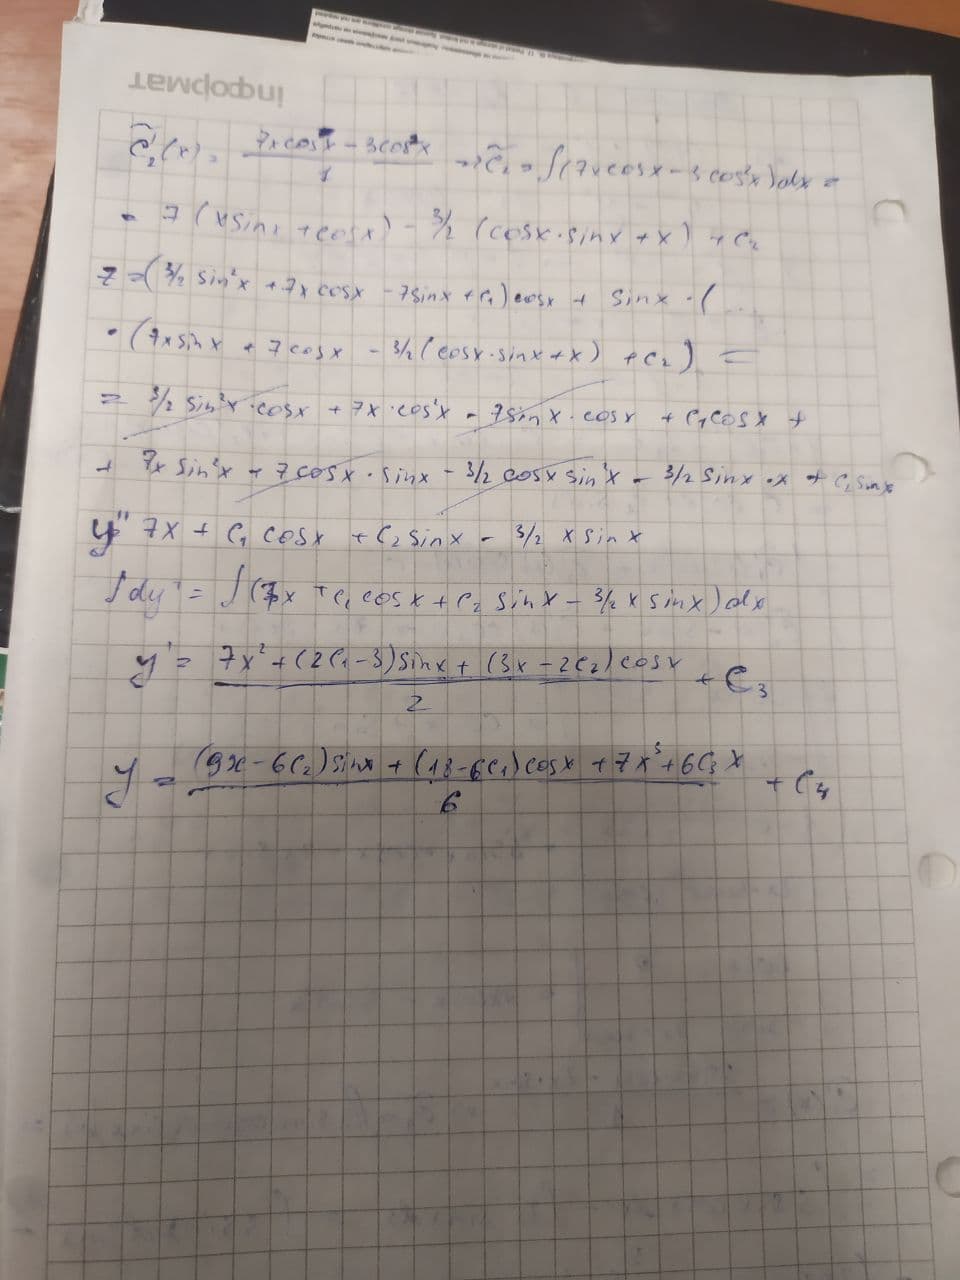 інформат
C̃₂'(x) = (7x cos x - 3cos²x)/1 => C̃₂ = ∫(7x cos x - 3 cos²x)dx =
= 7 (x sin x + cos x) - 3/2 (cos x · sin x + x) + C₂
z = (3/2 sin²x + 7x cos x - 7 sin x + C₁) cos x + sin x · (...
· (7x sin x + 7 cos x - 3/2 (cos x · sin x + x) + C₂) =
= 3/2 sin²x · cos x + 7x · cos²x - 7 sin x · cos x + C₁ cos x +
+ 7x sin²x + 7 cos x · sin x - 3/2 cos x sin²x - 3/2 sin x · x + C₂ sin x
y'' = 7x + C₁ cos x + C₂ sin x - 3/2 x sin x
∫dy' = ∫(7x + C₁ cos x + C₂ sin x - 3/2 x sin x) dx
y' = (7x² + (2C₁ - 3) sin x + (3x - 2C₂) cos x)/2 + C₃
y = ((9x - 6C₂) sin x + (18 - 6C₁) cos x + 7x³ + 6C₃ x)/6 + C₄